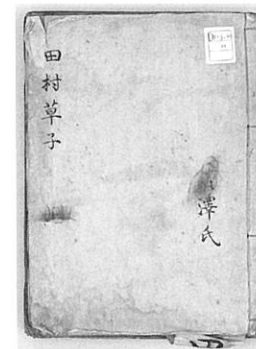 田村草子
澤氏